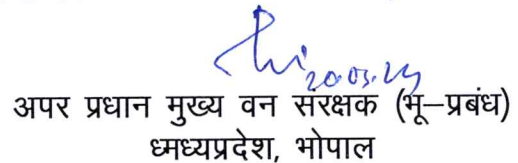 20.03.24
अपर प्रधान मुख्य वन संरक्षक (भू–प्रबंध)
ध्मध्यप्रदेश, भोपाल